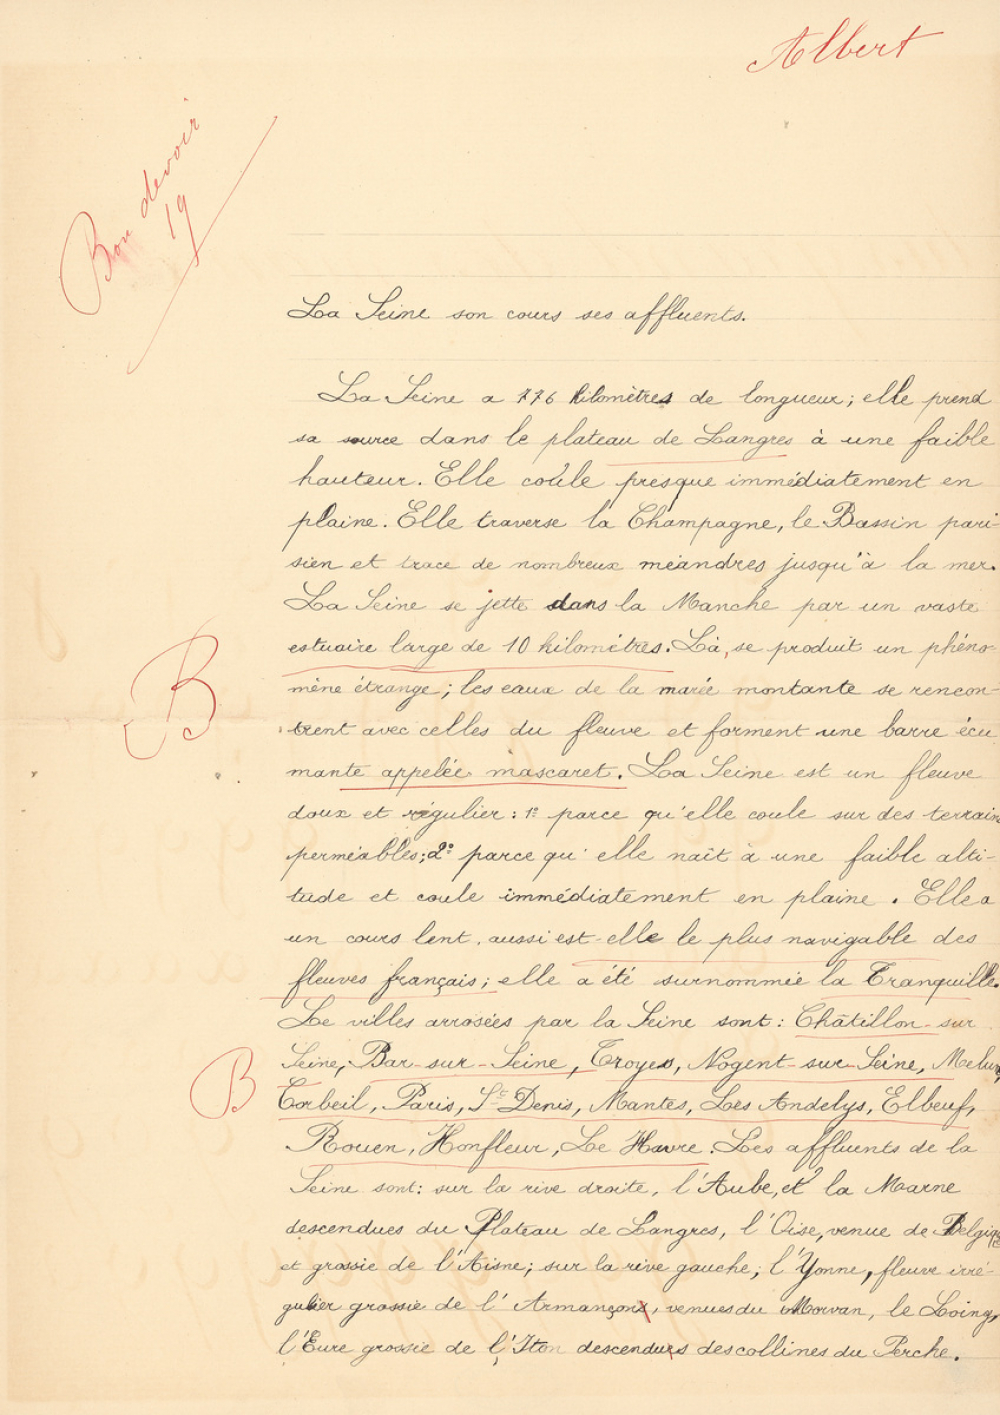 Albert
Bon devoir
19
La Seine son cours ses affluents.
La Seine a 776 kilomètres de longueur; elle prend
sa source dans le plateau de Langres à une faible
hauteur. Elle coule presque immédiatement en
plaine. Elle traverse la Champagne, le Bassin pari-
sien et trace de nombreux méandres jusqu'à la mer.
La Seine se jette dans la Manche par un vaste
estuaire large de 10 kilomètres. Là, se produit un phéno-
mène étrange; les eaux de la marée montante se rencon-
B
trent avec celles du fleuve et forment une barre écu
mante appelée mascaret. La Seine est un fleuve
doux et régulier: 1º parce qu'elle coule sur des terrains
perméables; 2º parce qu'elle naît à une faible alti-
tude et coule immédiatement en plaine. Elle a
un cours lent, aussi est-elle le plus navigable des
fleuves français; elle a été surnommée la Tranquille.
Le villes arrosées par la Seine sont: Châtillon-sur
Seine, Bar-sur-Seine, Troyes, Nogent-sur-Seine, Melun,
B
Corbeil, Paris, St Denis, Mantes, Les Andelys, Elbeuf,
Rouen, Honfleur, Le Havre. Les affluents de la
Seine sont: sur la rive droite, l'Aube, et la Marne
descendues du Plateau de Langres, l'Oise, venue de Belgique
et grossie de l'Aisne; sur la rive gauche; l'Yonne, fleuve irré-
gulier grossie de l'Armançon, venues du Morvan, le Loing,
l'Eure grossie de l'Iton descendues des collines du Perche.